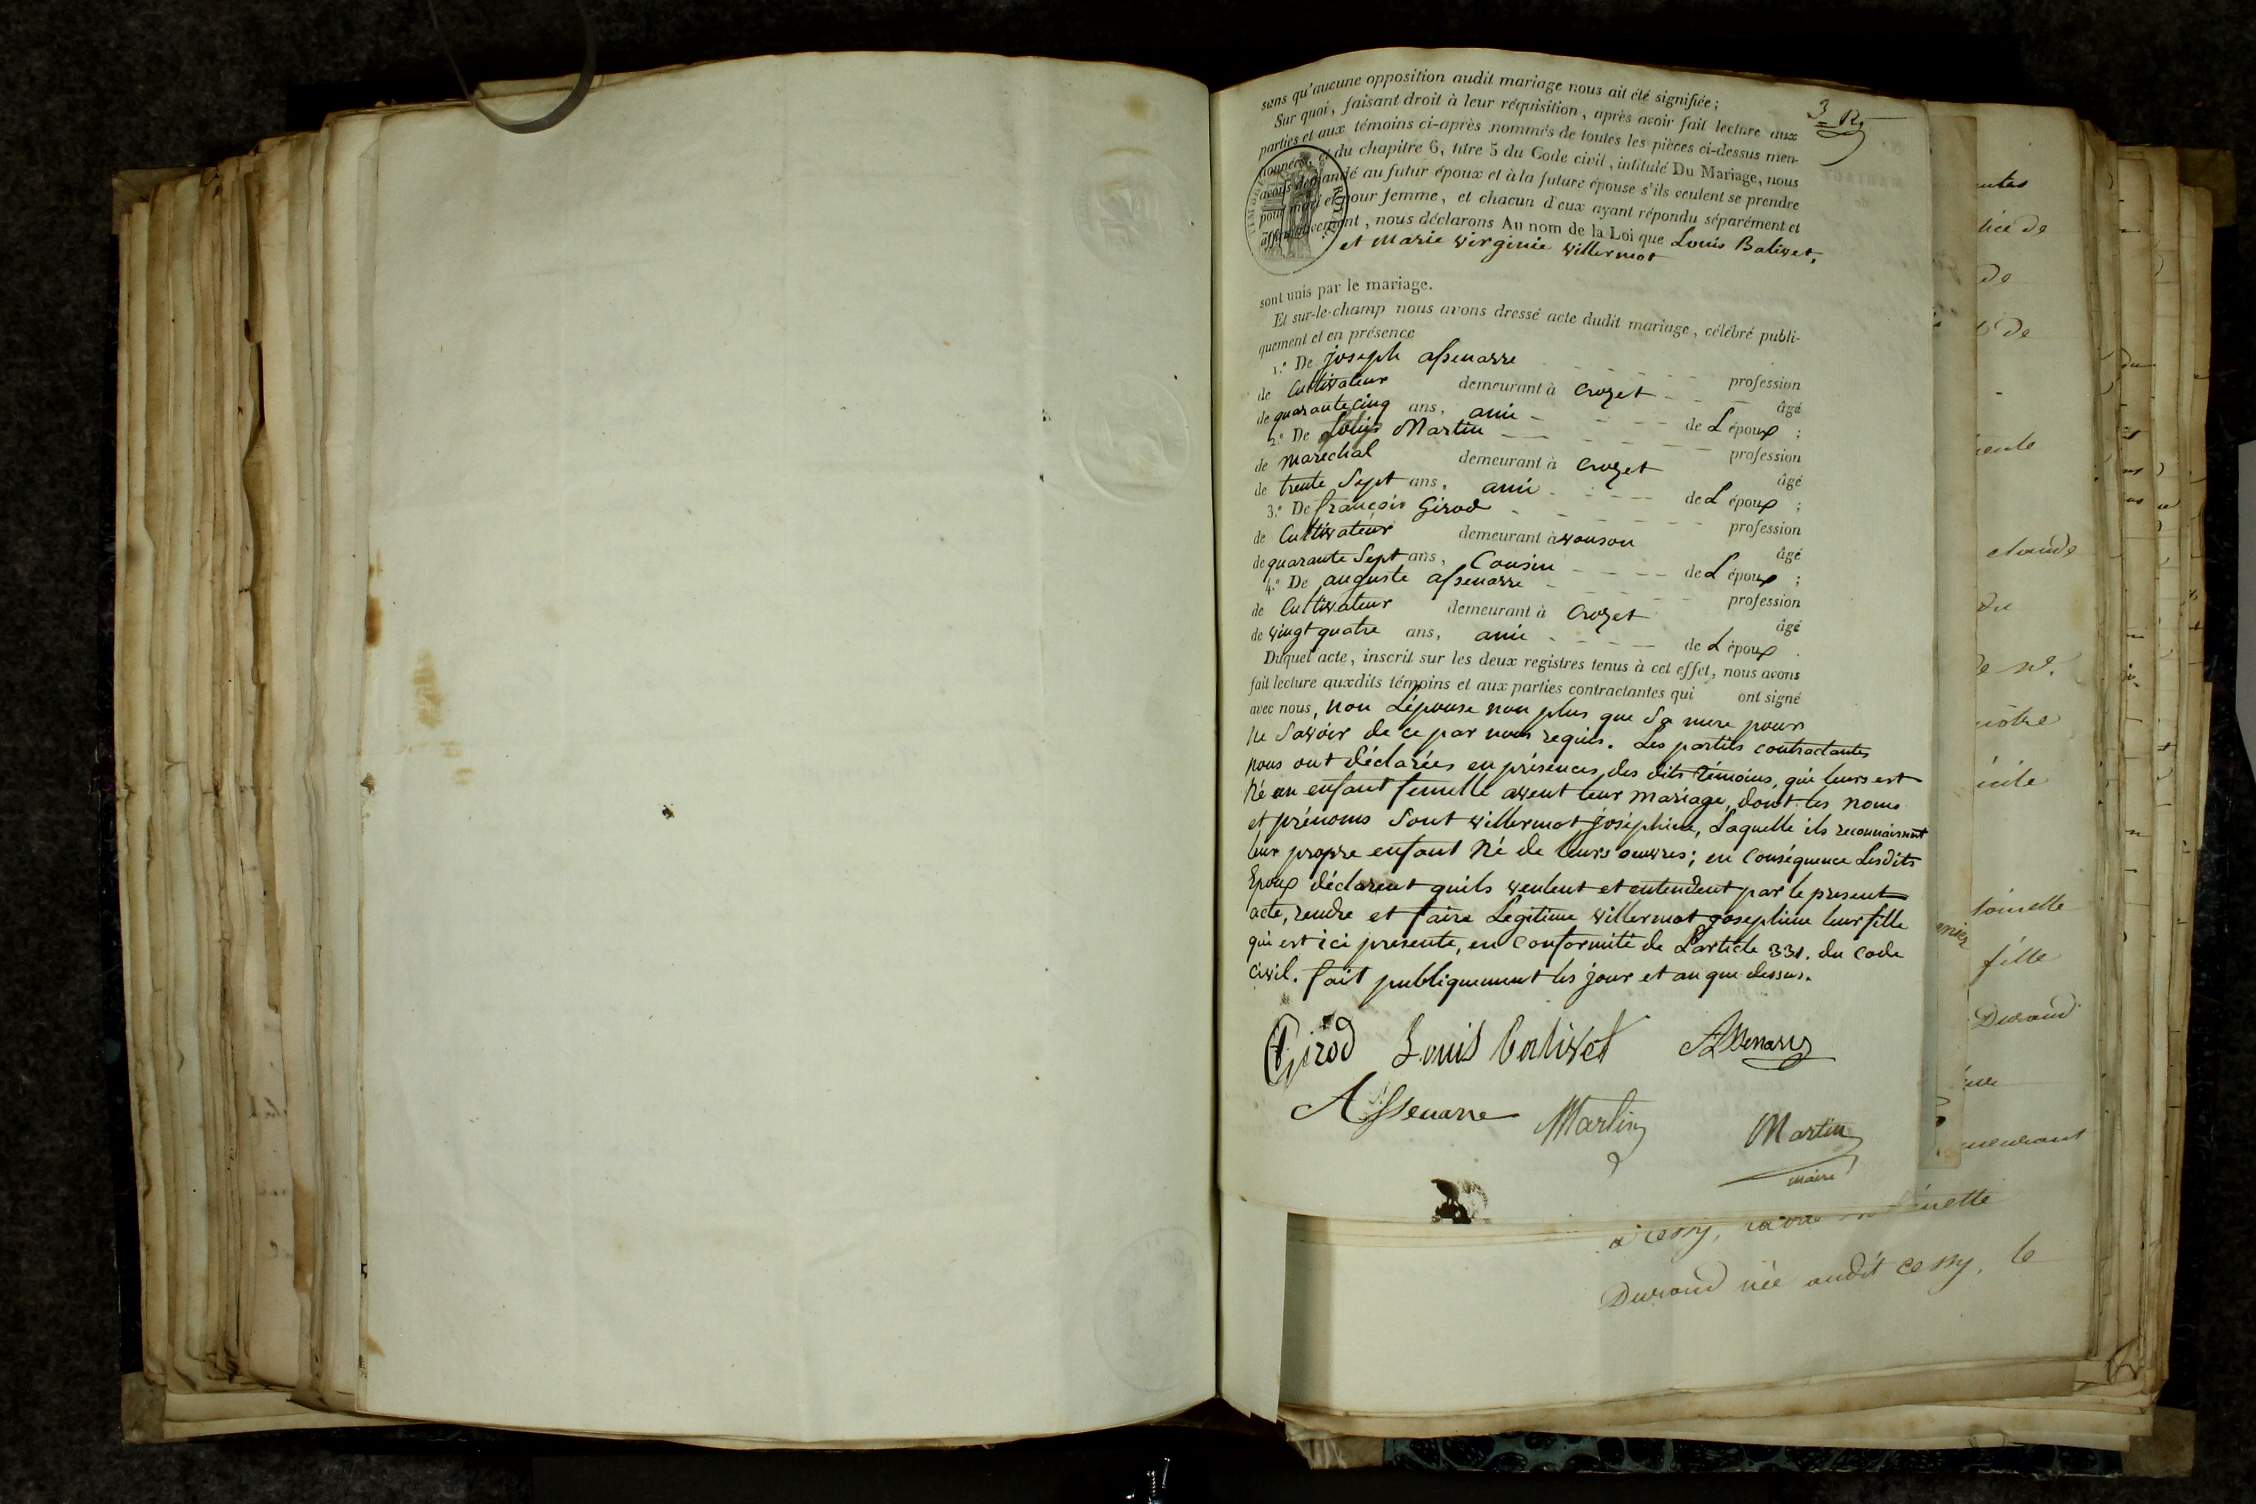 3 R
sans qu'aucune opposition audit mariage nous ait été signifiée ;
Sur quoi, faisant droit à leur réquisition, après avoir fait lecture aux
parties et aux témoins ci-après nommés de toutes les pièces ci-dessus men-
tionnées, et du chapitre 6, titre 5 du Code civil, intitulé Du Mariage, nous
avons demandé au futur époux et à la future épouse s'ils veulent se prendre
pour mari et pour femme, et chacun d'eux ayant répondu séparément et
affirmativement, nous déclarons Au nom de la Loi que Louis Balivet,
et Marie virginie villermot
sont unis par le mariage.
Et sur-le-champ nous avons dressé acte dudit mariage, célébré publi-
quement et en présence
1.° De joseph assenarre profession
de Cultivateur demeurant à Crozet âgé
de quarante cinq ans, ami de L époux ;
2.° De Louis Martin profession
de maréchal demeurant à Crozet âgé
de trente Sept ans, ami de L époux ;
3.° De françois Girod profession
de Cultivateur demeurant à vouson âgé
de quarante Sept ans, Cousin de L époux ;
4.° De auguste assenarre profession
de Cultivateur demeurant à Crozet âgé
de vingt quatre ans, ami de L époux .
Duquel acte, inscrit sur les deux registres tenus à cet effet, nous avons
fait lecture auxdits témoins et aux parties contractantes qui ont signé
avec nous, non L'épouse non plus que Sa mere pour
ne Savoir de ce par nous requis. Les partits contractantes
nous ont déclarées en présences des dits témoins, qui leurs est
Né un enfant femelle avent leur mariage, dont les noms
et prénoms Sont villermot joséphine, Laquelle ils reconnaissent
leur propre enfant Né de leurs œuvres ; en Conséquence Lesdits
Epoux déclarent quils veulent et entendent par le present
acte, rendre et faire Legitime villermot josephine leur fille
qui est ici presente, en conformité de L'article 331. du code
Civil. fait publiquement les jour et an que dessus.
Girod Louis Balivet Assenarre
Assenarre Martin Martin
maire
à Cessy,
Durand née audit Cessy, le
claude
fille
Durand